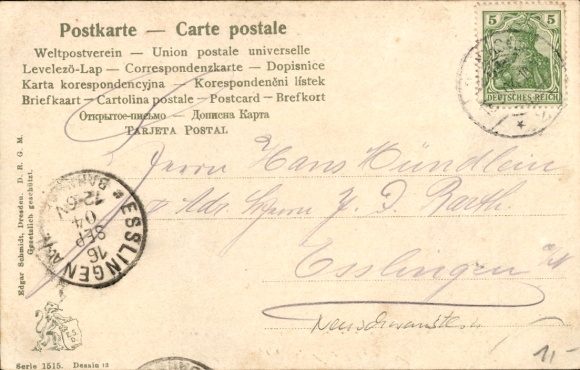 Postkarte — Carte postale
Weltpostverein — Union postale universelle
Levelezö-Lap — Correspondenzkarte — Dopisnice
Karta korespondencyjna — Korespondenčni listek
Briefkaart — Cartolina postale — Postcard — Brefkort
Открытое-письмо — Дописна Карта
TARJETA POSTAL
5 5
DEUTSCHES REICH
Herrn Hans Mündlein
Adr. Herrn J. D. Raith.
Esslingen a/N
ESSLINGEN A/N
BAHNH
16
SEP
04
12-6N
Edgar Schmidt, Dresden. D. R. G. M.
Gesetzlich geschützt.
Serie 1515. Dessin
1/-